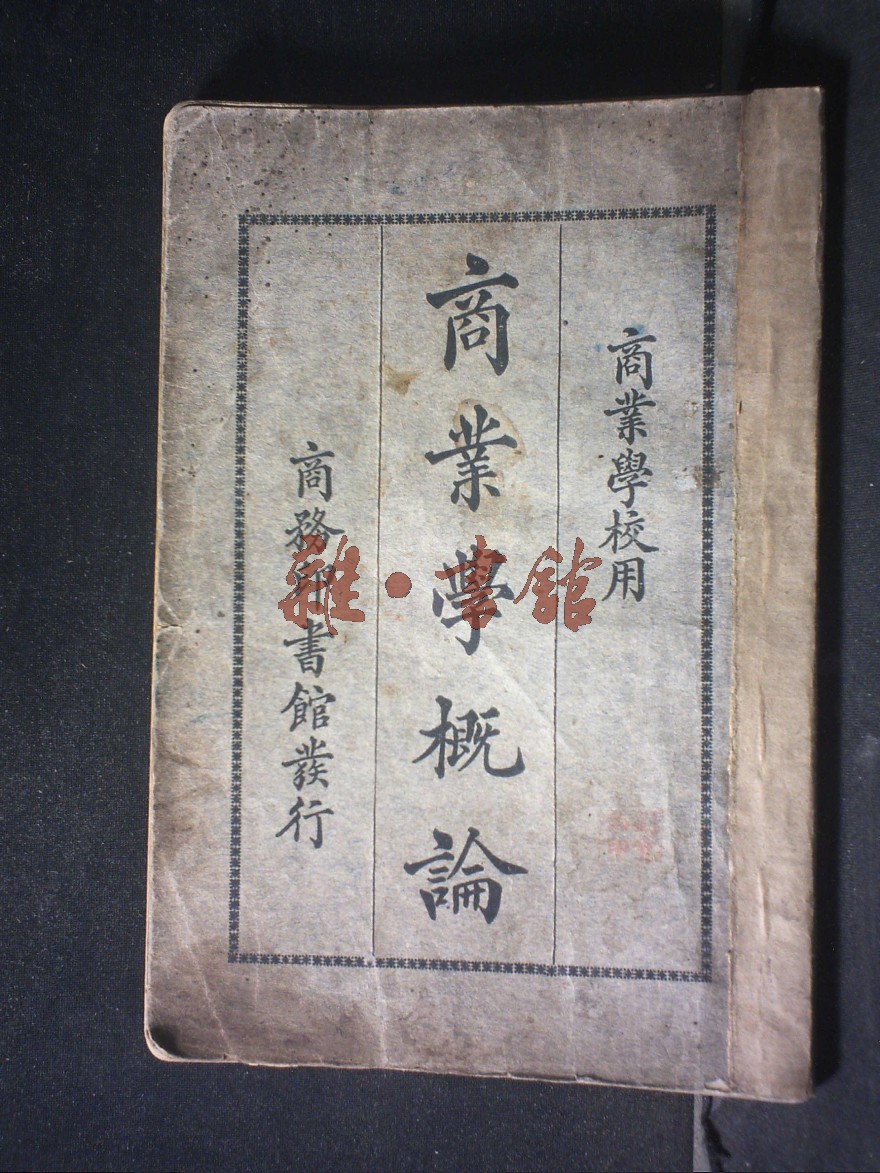 商業學校用
商業學概論
商務印書館發行
雜·書館